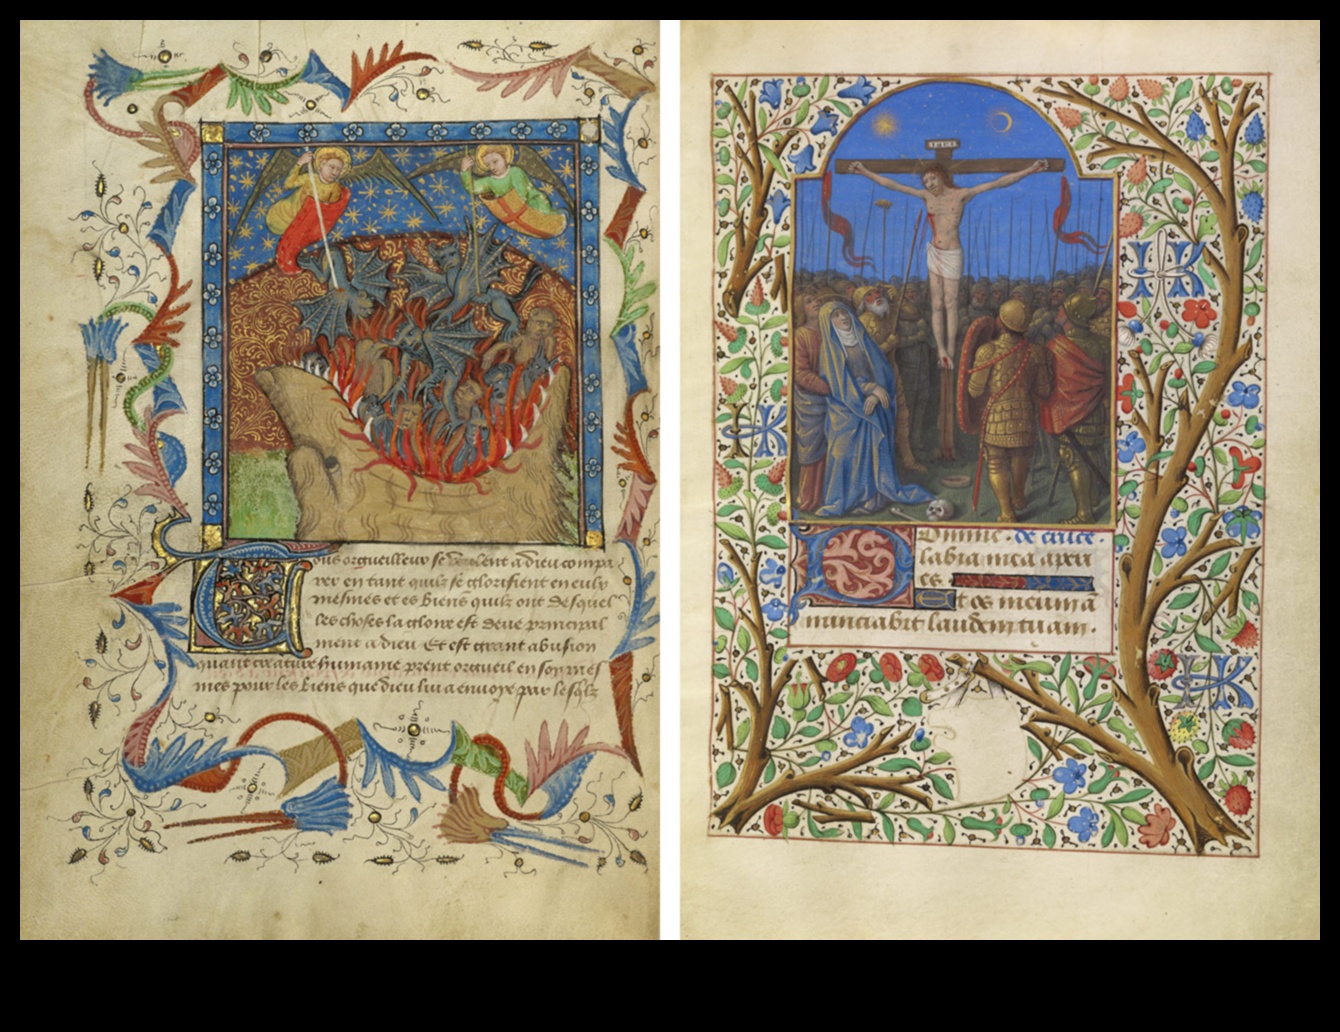 ous orgueilleux se veulent a dieu compa
rer en tant quilz se glorifient en eulx
mesmes et es biens quilz ont desquel
les choses la gloire est deue principal
ment a dieu Et est grant abusion
quant creature humaine prent orgueil en soy mes
mes pour les biens que dieu lui a envoye par le filz
Domine . de cruce
labia mea aperi
es
Et os meum a
nunciabit laudem tuam .